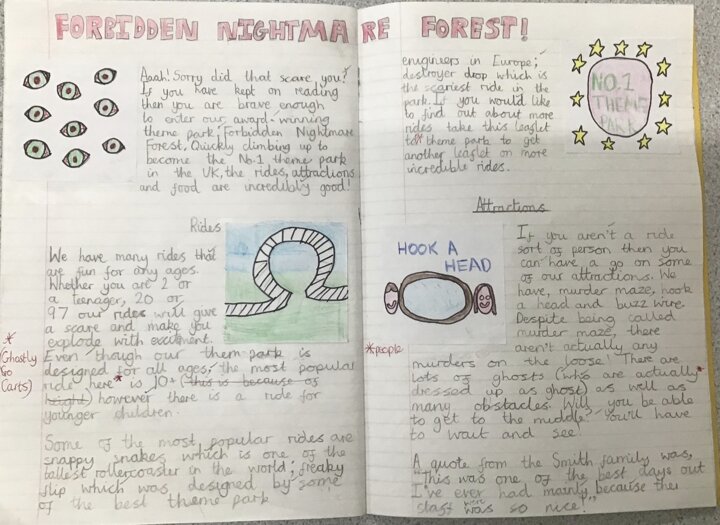 FORBIDDEN NIGHTMARE FOREST!
Aaah! Sorry did that scare you?
If you have kept on reading
then you are brave enough
to enter our award-winning
theme park; Forbidden Nightmare
Forest, Quickly climbing up to
become the No.1 theme park
in the UK, the rides, attractions
and food are incredibly good!
Rides
We have many rides that
are fun for any ages.
Whether you are 2 or
a teenager, 20 or
97 our rides will give
a scare and make you
explode with excitment.
Even though our them park is
designed for all ages, the most popular
ride here* is 10+ (this is because of
height) however there is a ride for
younger children.
* (Ghostly
Go
Carts)
Some of the most popular rides are
snappy snakes which is one of the
tallest rollercoaster in the world; freaky
flip which was designed by some
of the best theme park
engineers in Europe;
destroyer drop which is
the scariest ride in the
park. If you would like
to find out about more
rides take this leaflet
to* theme park to get
another leaflet on more
incredible rides.
NO.1
THEME
PARK
Attractions
HOOK A
HEAD
If you aren't a ride
sort of person then you
can have a go on some
of our attractions. We
have, murder maze, hook
a head and buzz wire.
Despite being called
murder maze, there
aren't actually any
murders on the loose! There are
lots of ghosts (who are actually*
dressed up as ghost) as well as
many obstacles. Will you be able
to get to the middle? You'll have
to wait and see!
*people
A quote from the Smith family was,
"This was one of the best days out
I've ever had mainly because the
staff was so nice!"
were